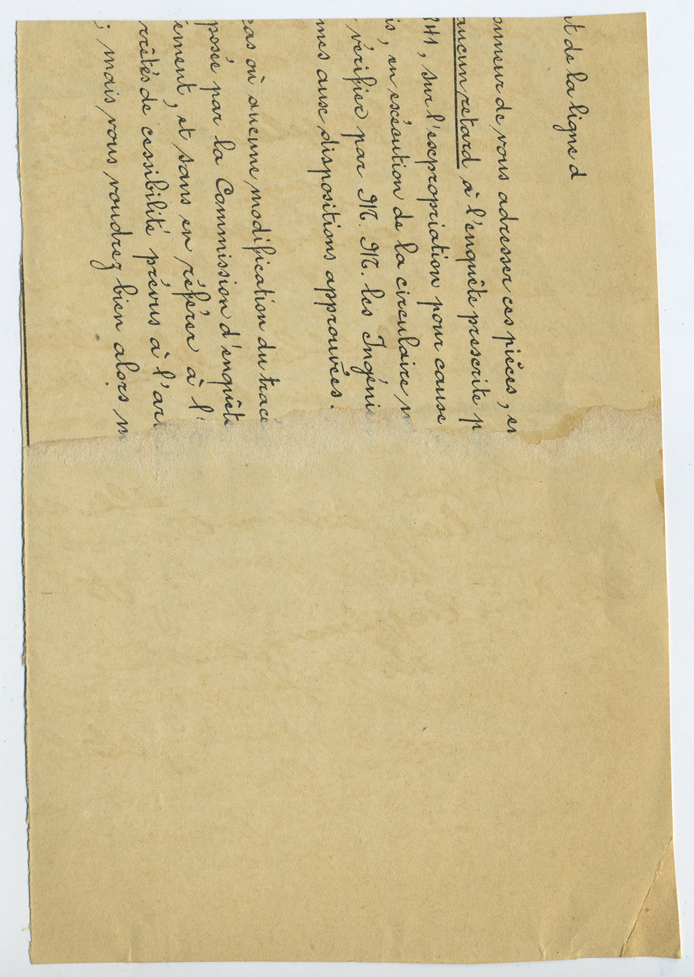 t de la ligne d
onneur de vous adresser ces pièces, en
aucun retard à l'enquête prescrite p
841, sur l'expropriation pour cause
is, en exécution de la circulaire
vérifier par M. M. les Ingéni
mes aux dispositions approuvées.
cas où aucune modification du tracé
posée par la Commission d'enquête
ement, et sans en référer à l'
rrêtés de cessibilité prévus à l'ar
; mais vous voudrez bien alors m